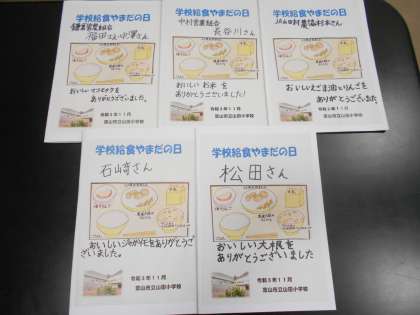 学校給食やまだの日
鎌倉営農組合
福田さん中澤さん
おいしいマコモタケを
ありがとうございました。
令和3年11月
富山市立山田小学校
学校給食やまだの日
中村営農組合
長谷川さん
おいしいお米を
ありがとうございました!
令和3年11月
富山市立山田小学校
学校給食やまだの日
村本さん
おいしいえごま油とりんごを
ありがとうございました
令和3年11月
富山市立山田小学校
学校給食やまだの日
石崎さん
おいしいジャガイモをありがとうご
ざいました。
令和3年11月
富山市立山田小学校
学校給食やまだの日
松田さん
おいしい大根を
ありがとうございました
令和3年11月
富山市立山田小学校